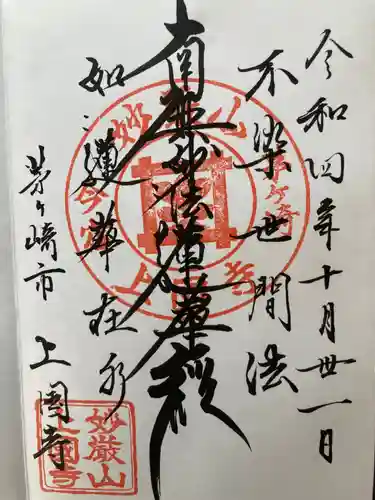 令和四年十月卅一日
不染世間法
南無妙法蓮華経
如蓮華在水
茅ヶ崎市 上国寺
妙厳山
上国寺